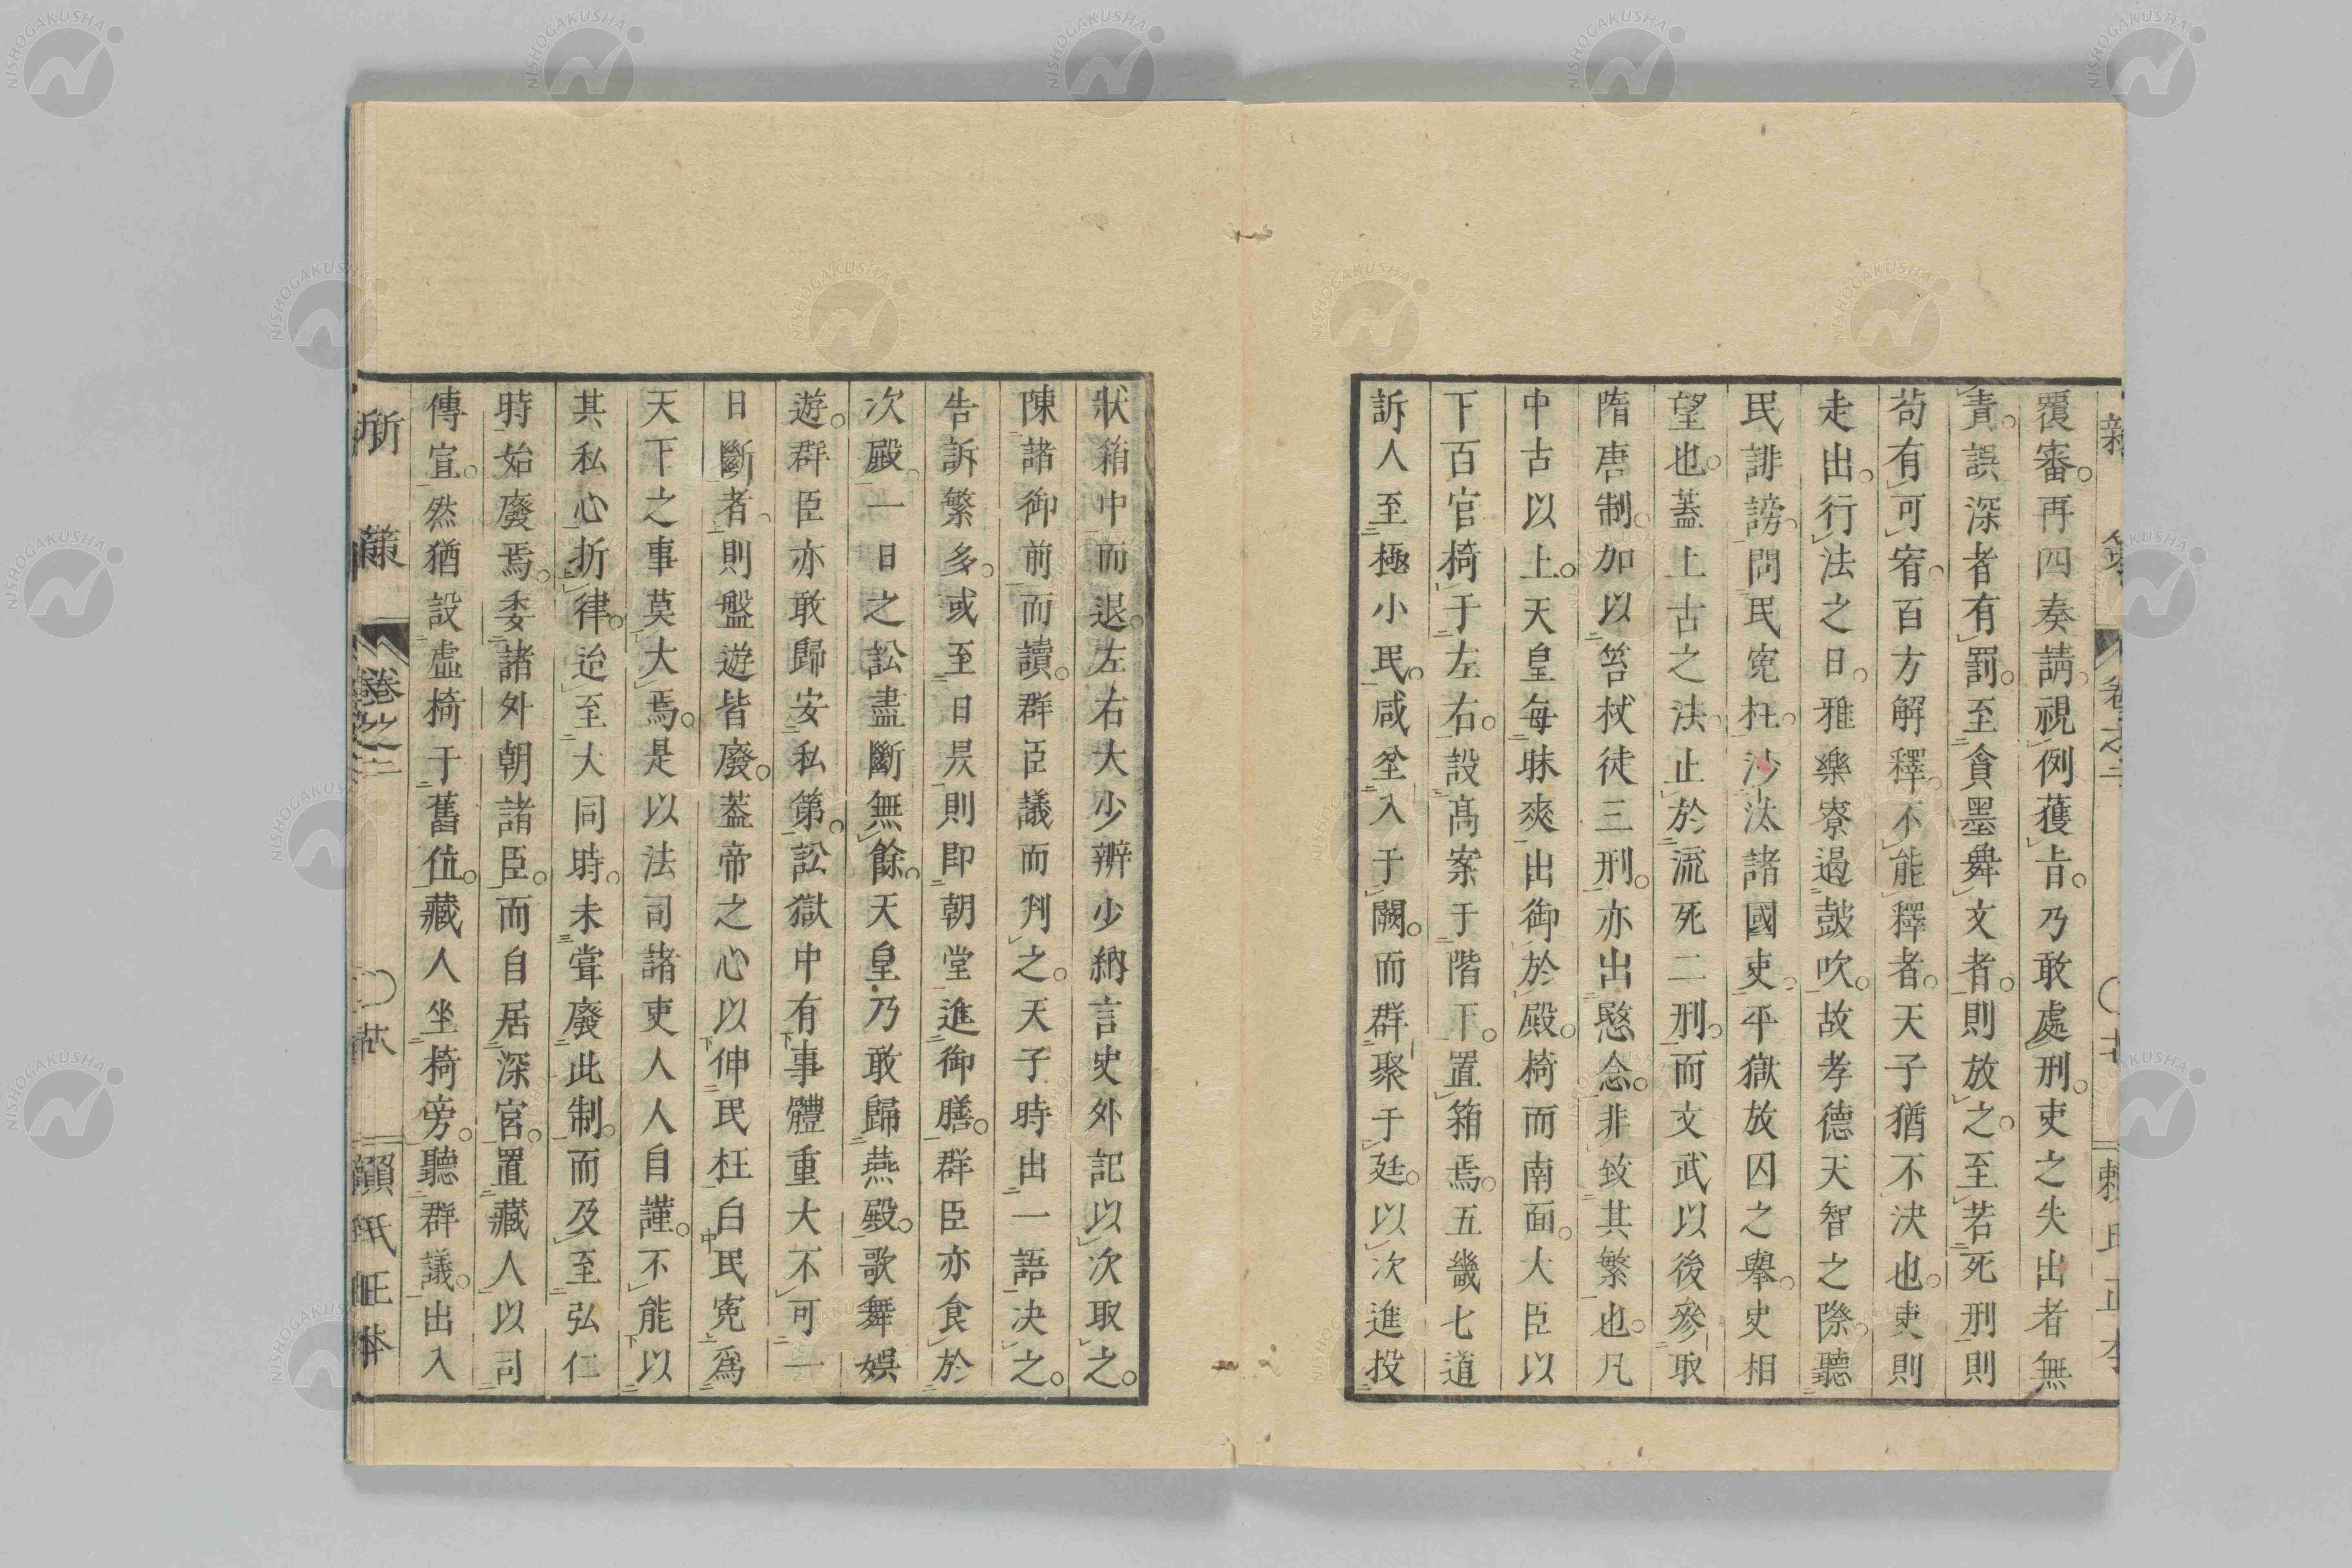 覆審。再四奏請。視例獲旨。乃敢處刑。吏之失出者無
責。誤深者有罰。至貪墨舞文者。則放之。至若死刑則
苟有可宥。百方解釋。不能釋者。天子猶不決也。吏則
走出。行法之日。雅樂寮遏鼓吹。故孝德天智之際。聽
民誹謗。問民寃枉。沙汰諸國吏。平獄放囚之擧。史相
望也。蓋上古之法。止於流死二刑。而文武以後參取
隋唐制。加以笞杖徒三刑。亦出愍念。非致其繁也。凡
中古以上。天皇每昧爽出御於殿。椅而南面。大臣以
下百官椅于左右。設髙案于階下。置箱焉。五畿七道
訴人至極小民。咸坌入于闕。而群聚于廷。以次進投
狀箱中而退。左右大少辨少納言史外記以次取之。
陳諸御前而讀。群臣議而判之。天子時出一語決之。
告訴繁多。或至日昃則即朝堂進御膳。群臣亦食於
次殿。一日之訟盡斷無餘。天皇乃敢歸燕殿。歌舞娛
遊。群臣亦敢歸安私第。訟獄中有事體重大不可一
日斷者。則盤遊皆廢。蓋帝之心以伸民枉白民寃爲
天下之事莫大焉。是以法司諸吏人人自謹。不能以
其私心折律。迨至大同時。未嘗廢此制。而及至弘仁
時始廢焉。委諸外朝諸臣。而自居深宮。置藏人以司
傳宣。然猶設虛椅于舊位。藏人坐椅旁。聽群議。出入
新策
卷之二
賴氏正本